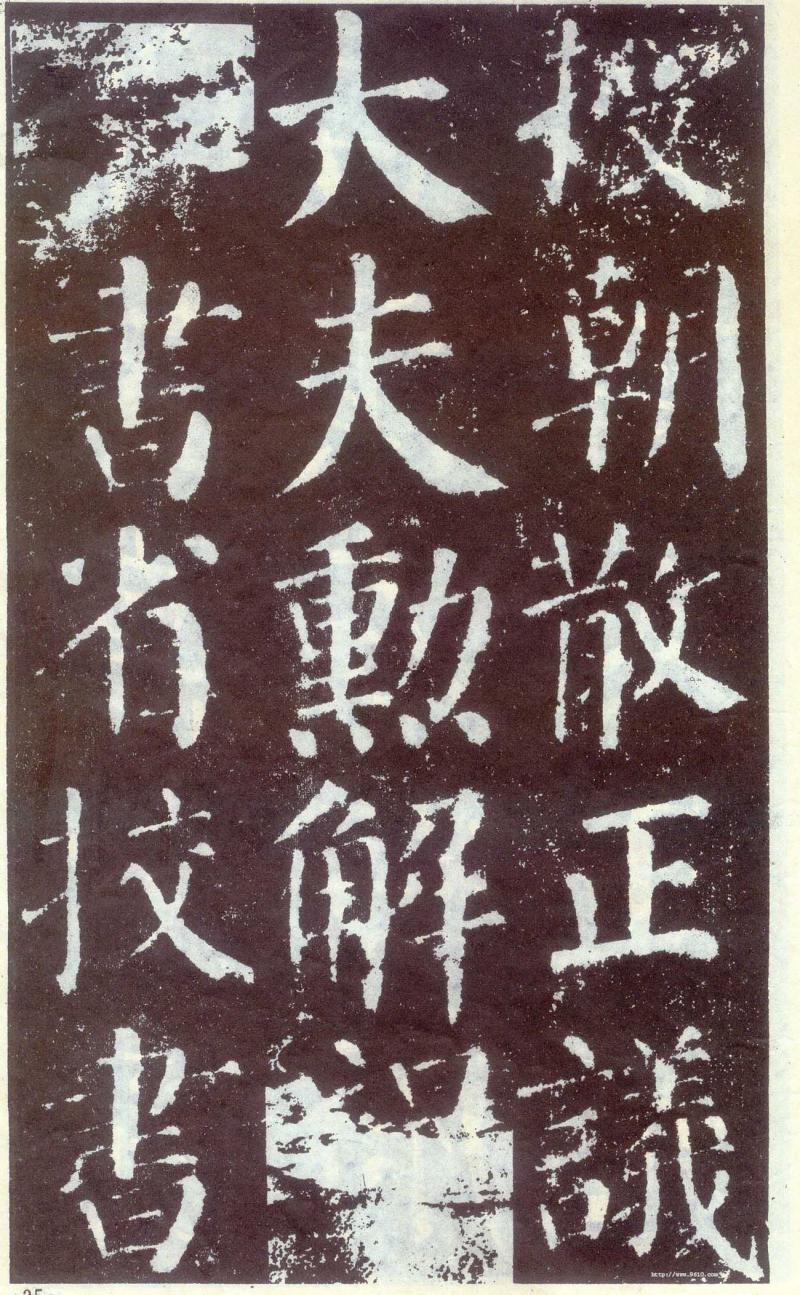 授朝散正議
大夫勳解
書省挍書
http://www.9610.com